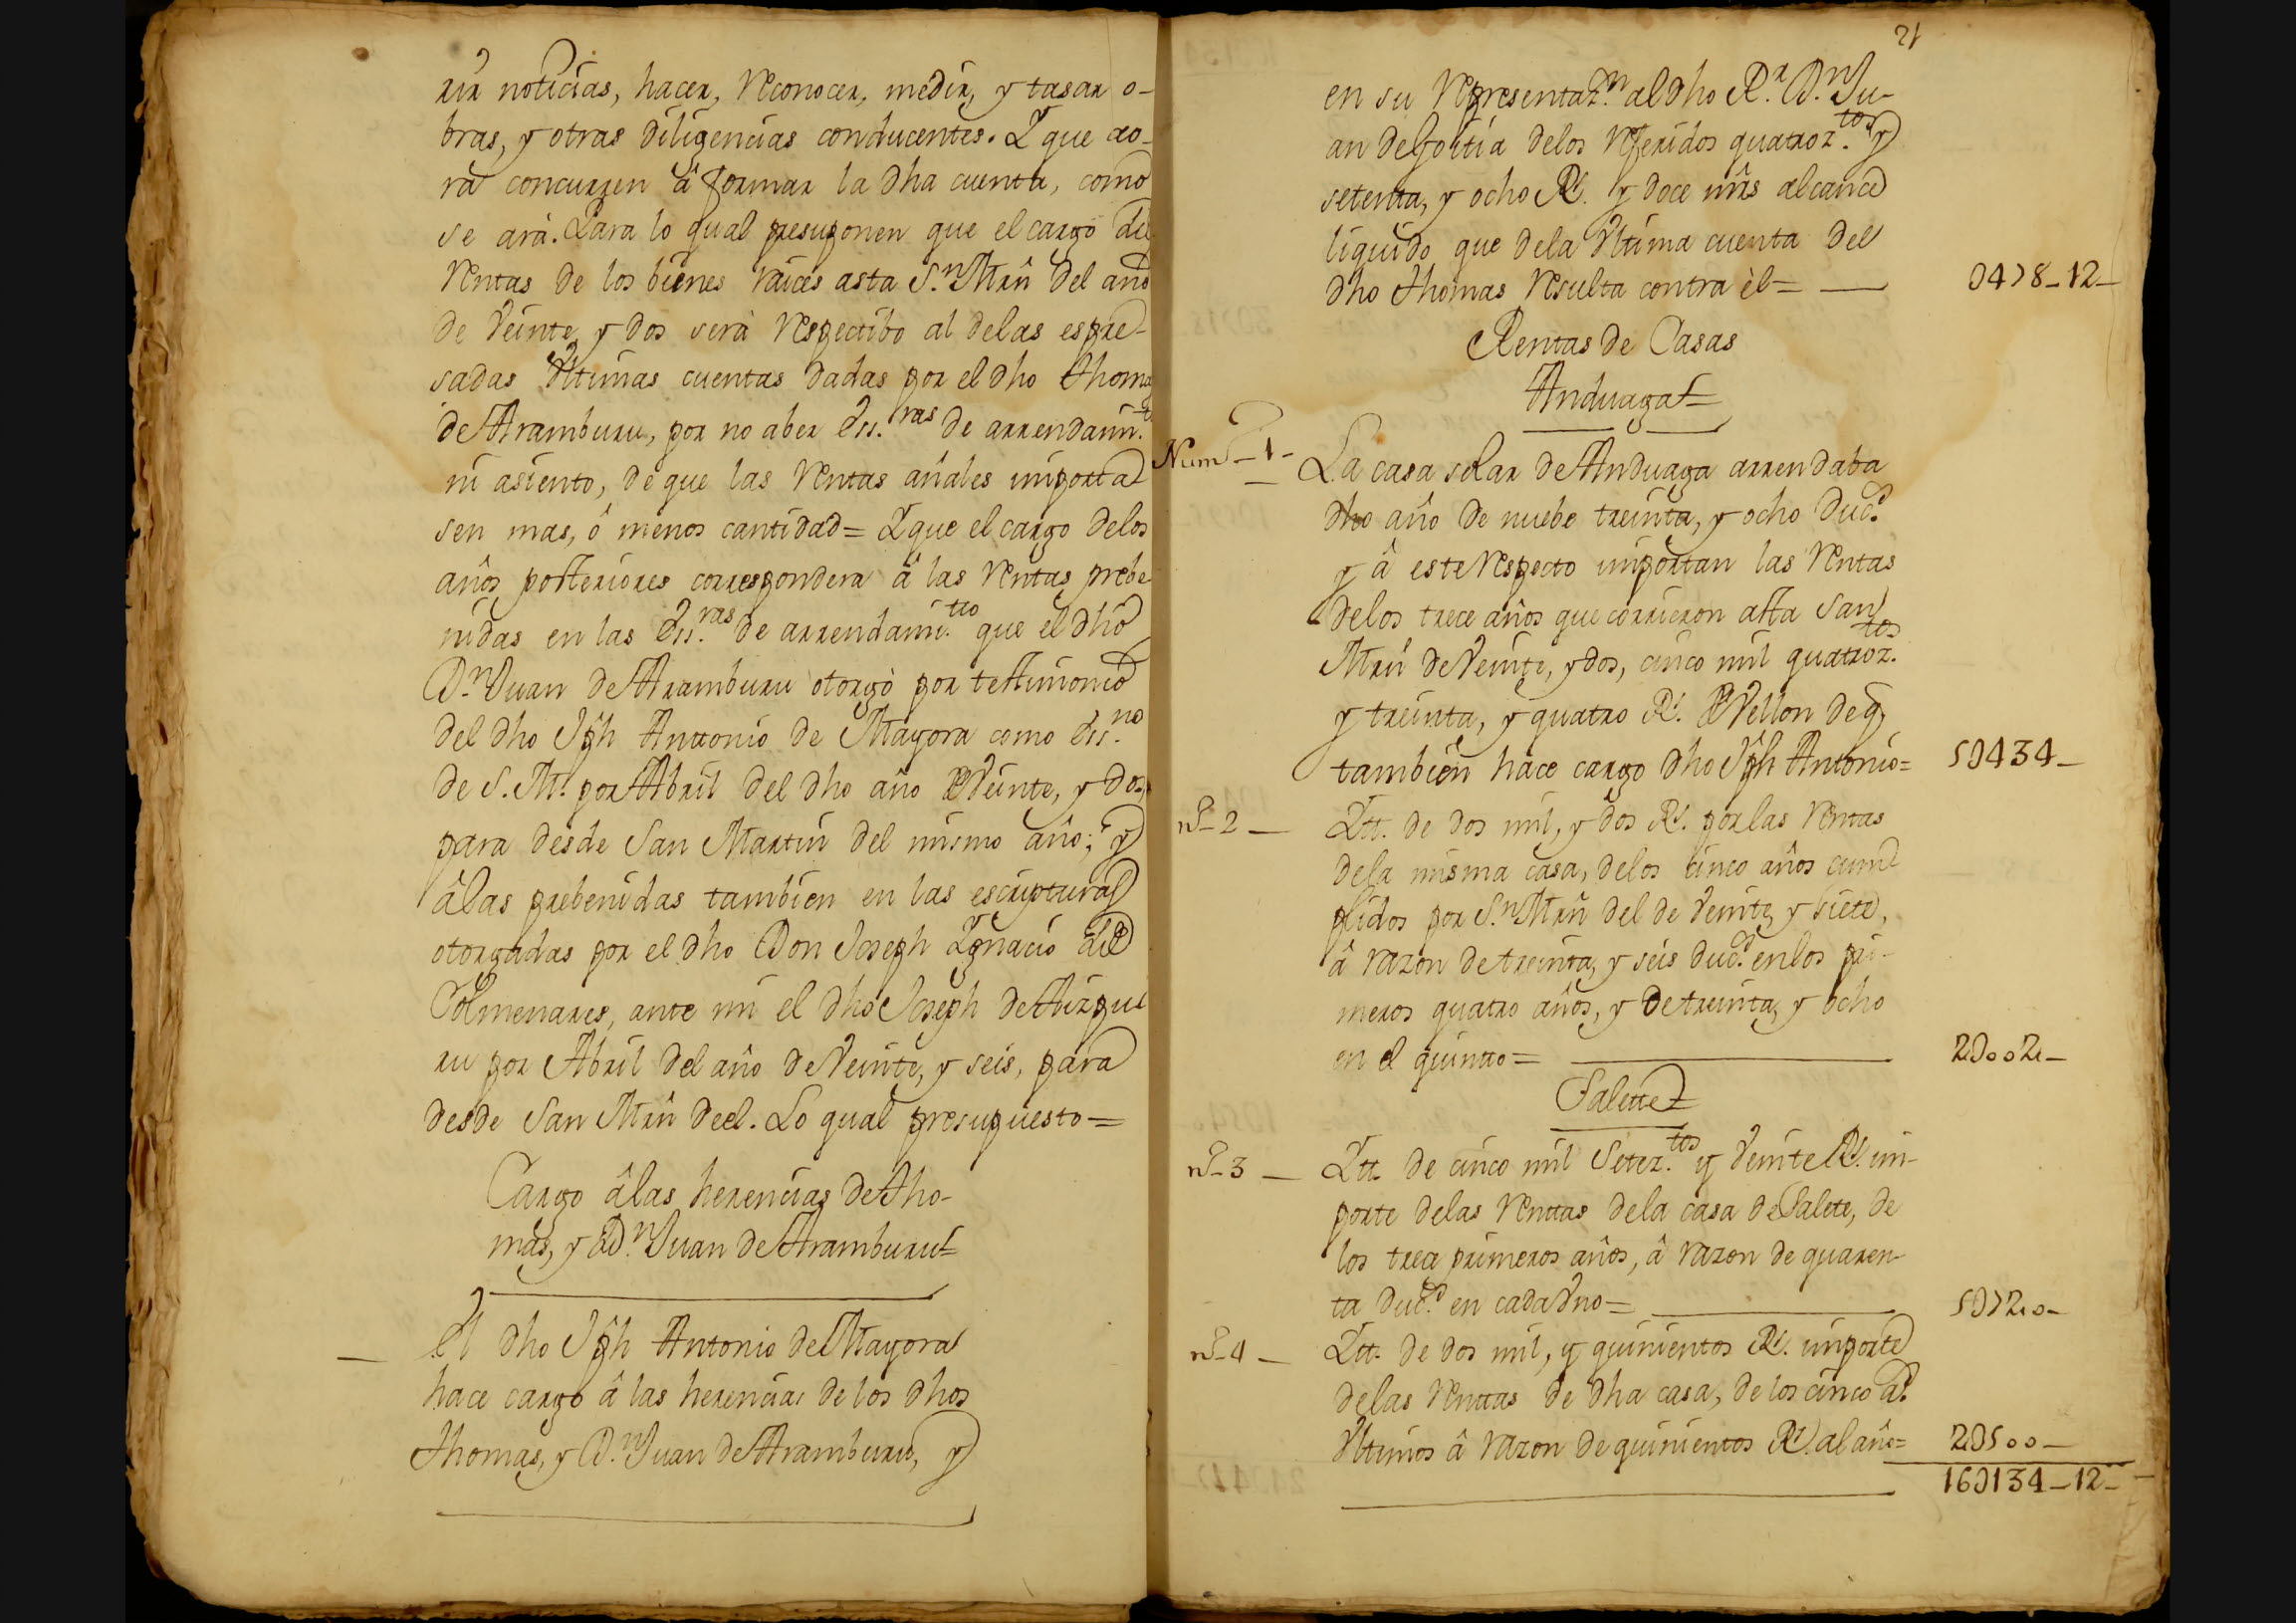 rir noticias, hacer, Reconocer, medir, y tasar o-
bras, y otras diligencias conducentes. Y que ao-
ra concurren â formar la dha cuenta, como
se arà. Para lo qual presuponen que el cargo de
Rentas de los bienes raices asta S.n Mrñ del año
de Veinte, y dos serà Respectibo al delas espre-
sadas Vltimas cuentas dadas por el dho Thomas
de Aramburu, por no aber Ess.ras de arrendam.to
ni asiento, de que las Rentas añales importa
sen mas, ô menos cantidad= Y que el cargo delos
años posteriores correspondera â las Rentas prebe
nidas en las Ess.ras de arrendami.tto que el dho
D.n Juan de Aramburu otorgò por testimonio
del dho Jph Anttonio de Mayora como Ess.no
de S. M. por Abril del dho año de Veinte, y dos,
para desde San Martin del mismo año; y
âlas prebenidas tambien en las escripturas
otorgadas por el dho Don Joseph Ygnacio de
Colmenares, ante mi el dho Joseph de Aizpu
ru por Abril del año de Veinte, y seis, para
desde San Mrñ deel. Lo qual presupuesto=
Cargo âlas herencias de Tho-
mas, y D.n Juan de Aramburu=
El dho Jph Antonio de Mayora
hace cargo â las herencias de los dhos
Thomas, y D.n Juan de Aramburu, y
21
en su Representaz.n al dho R.r D.n Ju-
an de Goitia delos Referidos quatroz.tos y
setenta, y ocho R.s y doce mrs alcance
liquido que dela Vltima cuenta del
dho Thomas Resulta contra èl= 0478-12-
Rentas de Casas
Anduaga=
Num.o-1- La casa solar de Anduaga arrendaba
dho año de nuebe treinta, y ocho Duc.s
y â este Respecto importan las Rentas
delos trece años que corrieron asta San
Mrñ de Veinte, y dos, cinco mil quatroz.tos
y treinta, y quatro R.s de Vellon de q
tambien hace cargo dho Jph Antonio= 5D434-
n.o-2- Ytt. de dos mil, y dos R.s por las Rentas
dela misma casa, delos cinco años cum
plidos por S.n Mrñ del de Veinte, y siete,
â razon de treinta, y seis duc.s en los pri-
meros quatro años, y de treinta, y ocho
en el quinto= 2D002-
Salette=
n.o-3- Ytt. de cinco mil Setez.tos y Veinte R.s im-
porte delas Renttas dela casa de Salete, de
los trece primeros años, â razon de quaren-
ta duc.s en cada Vno= 5D720-
n.o-4- Ytt. de dos mil, y quinientos R.s importe
delas Renttas de dha casa, de los cinco a.s
Vltimos â razon de quinientos R.s al año= 2D500-
16D134-12-